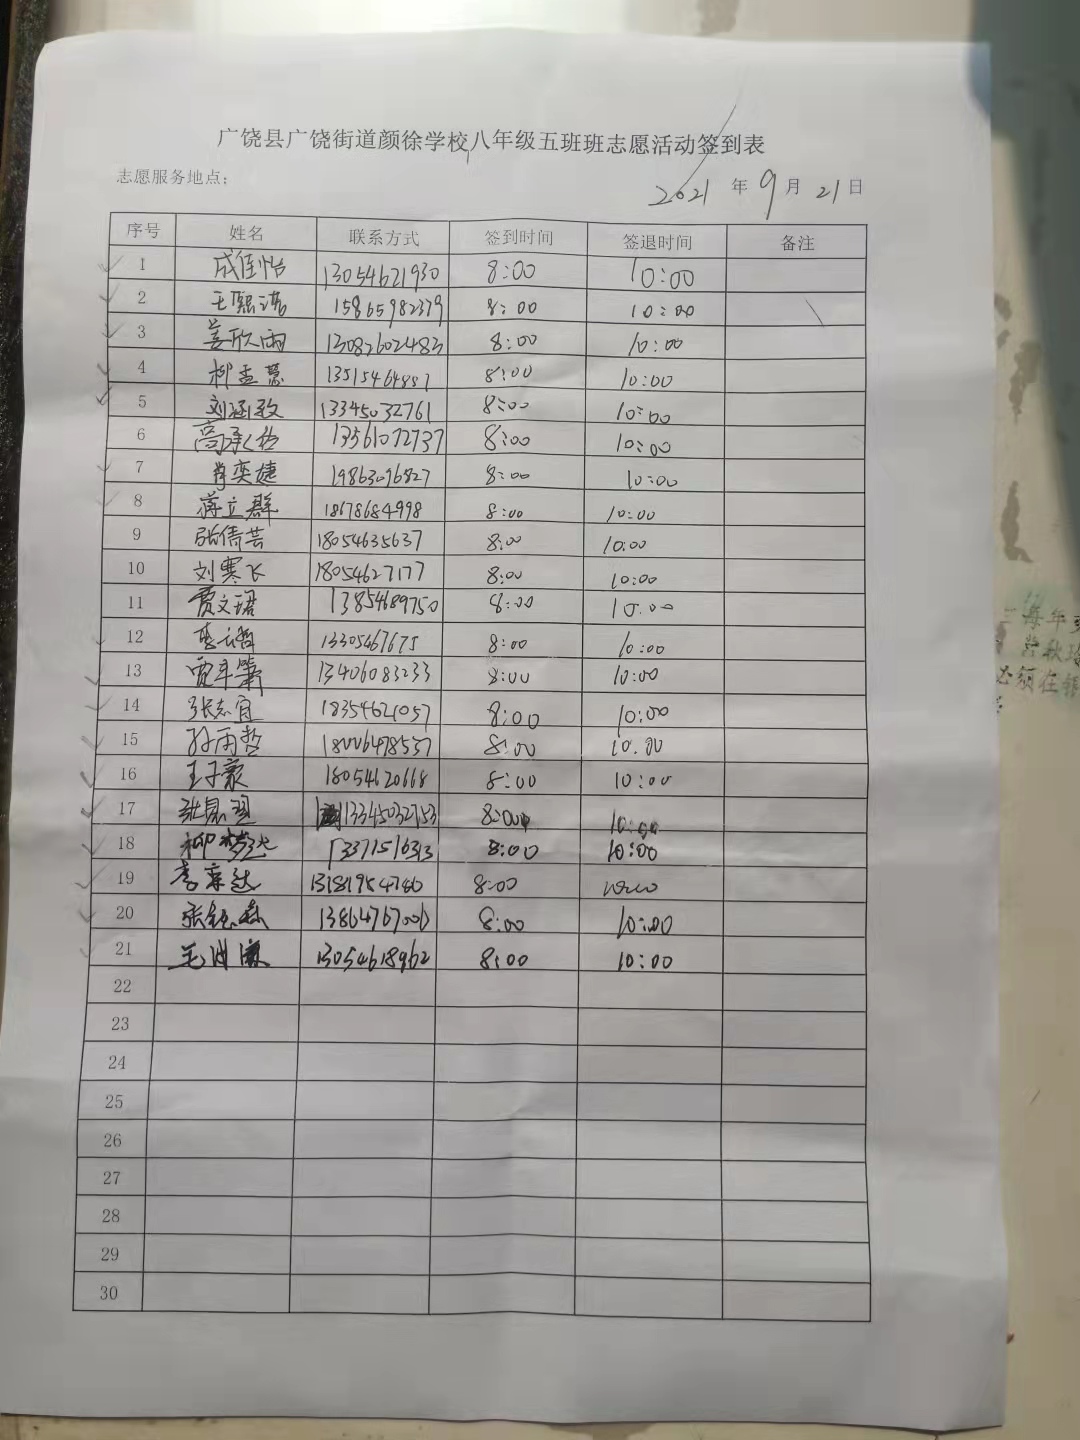 广饶县广饶街道颜徐学校八年级五班班志愿活动签到表
志愿服务地点：
2021 年 9 月 21 日
序号 姓名 联系方式 签到时间 签退时间 备注
1 成佳怡 13054621930 8:00 10:00
2 王熙 15865982379 8:00 10:00
3 姜欣雨 13082602483 8:00 10:00
4 柳孟慧 8:00 10:00
5 刘涵致 13345032761 8:00 10:00
6 高承 13561072737 8:00 10:00
7 肖奕婕 19863096827 8:00 10:00
8 蒋立群 18678684998 8:00 10:00
9 张倩芸 18054635637 8:00 10:00
10 刘寒飞 18054627177 8:00 10:00
11 贾文珺 13854689750 8:00 10:00
12 李 13305467675 8:00 10:00
13 贾 13406083233 8:00 10:00
14 张志宜 18354621057 8:00 10:00
15 孙丙哲 18006478537 8:00 10.00
16 王子豪 18054620668 8:00 10:00
17 张 13345032753 8:00 10:00
18 柳 13371516313 8:00 10:00
19 李 8:00
20 张 8:00 10:00
21 13054618962 8:00 10:00
22
23
24
25
26
27
28
29
30
三每年